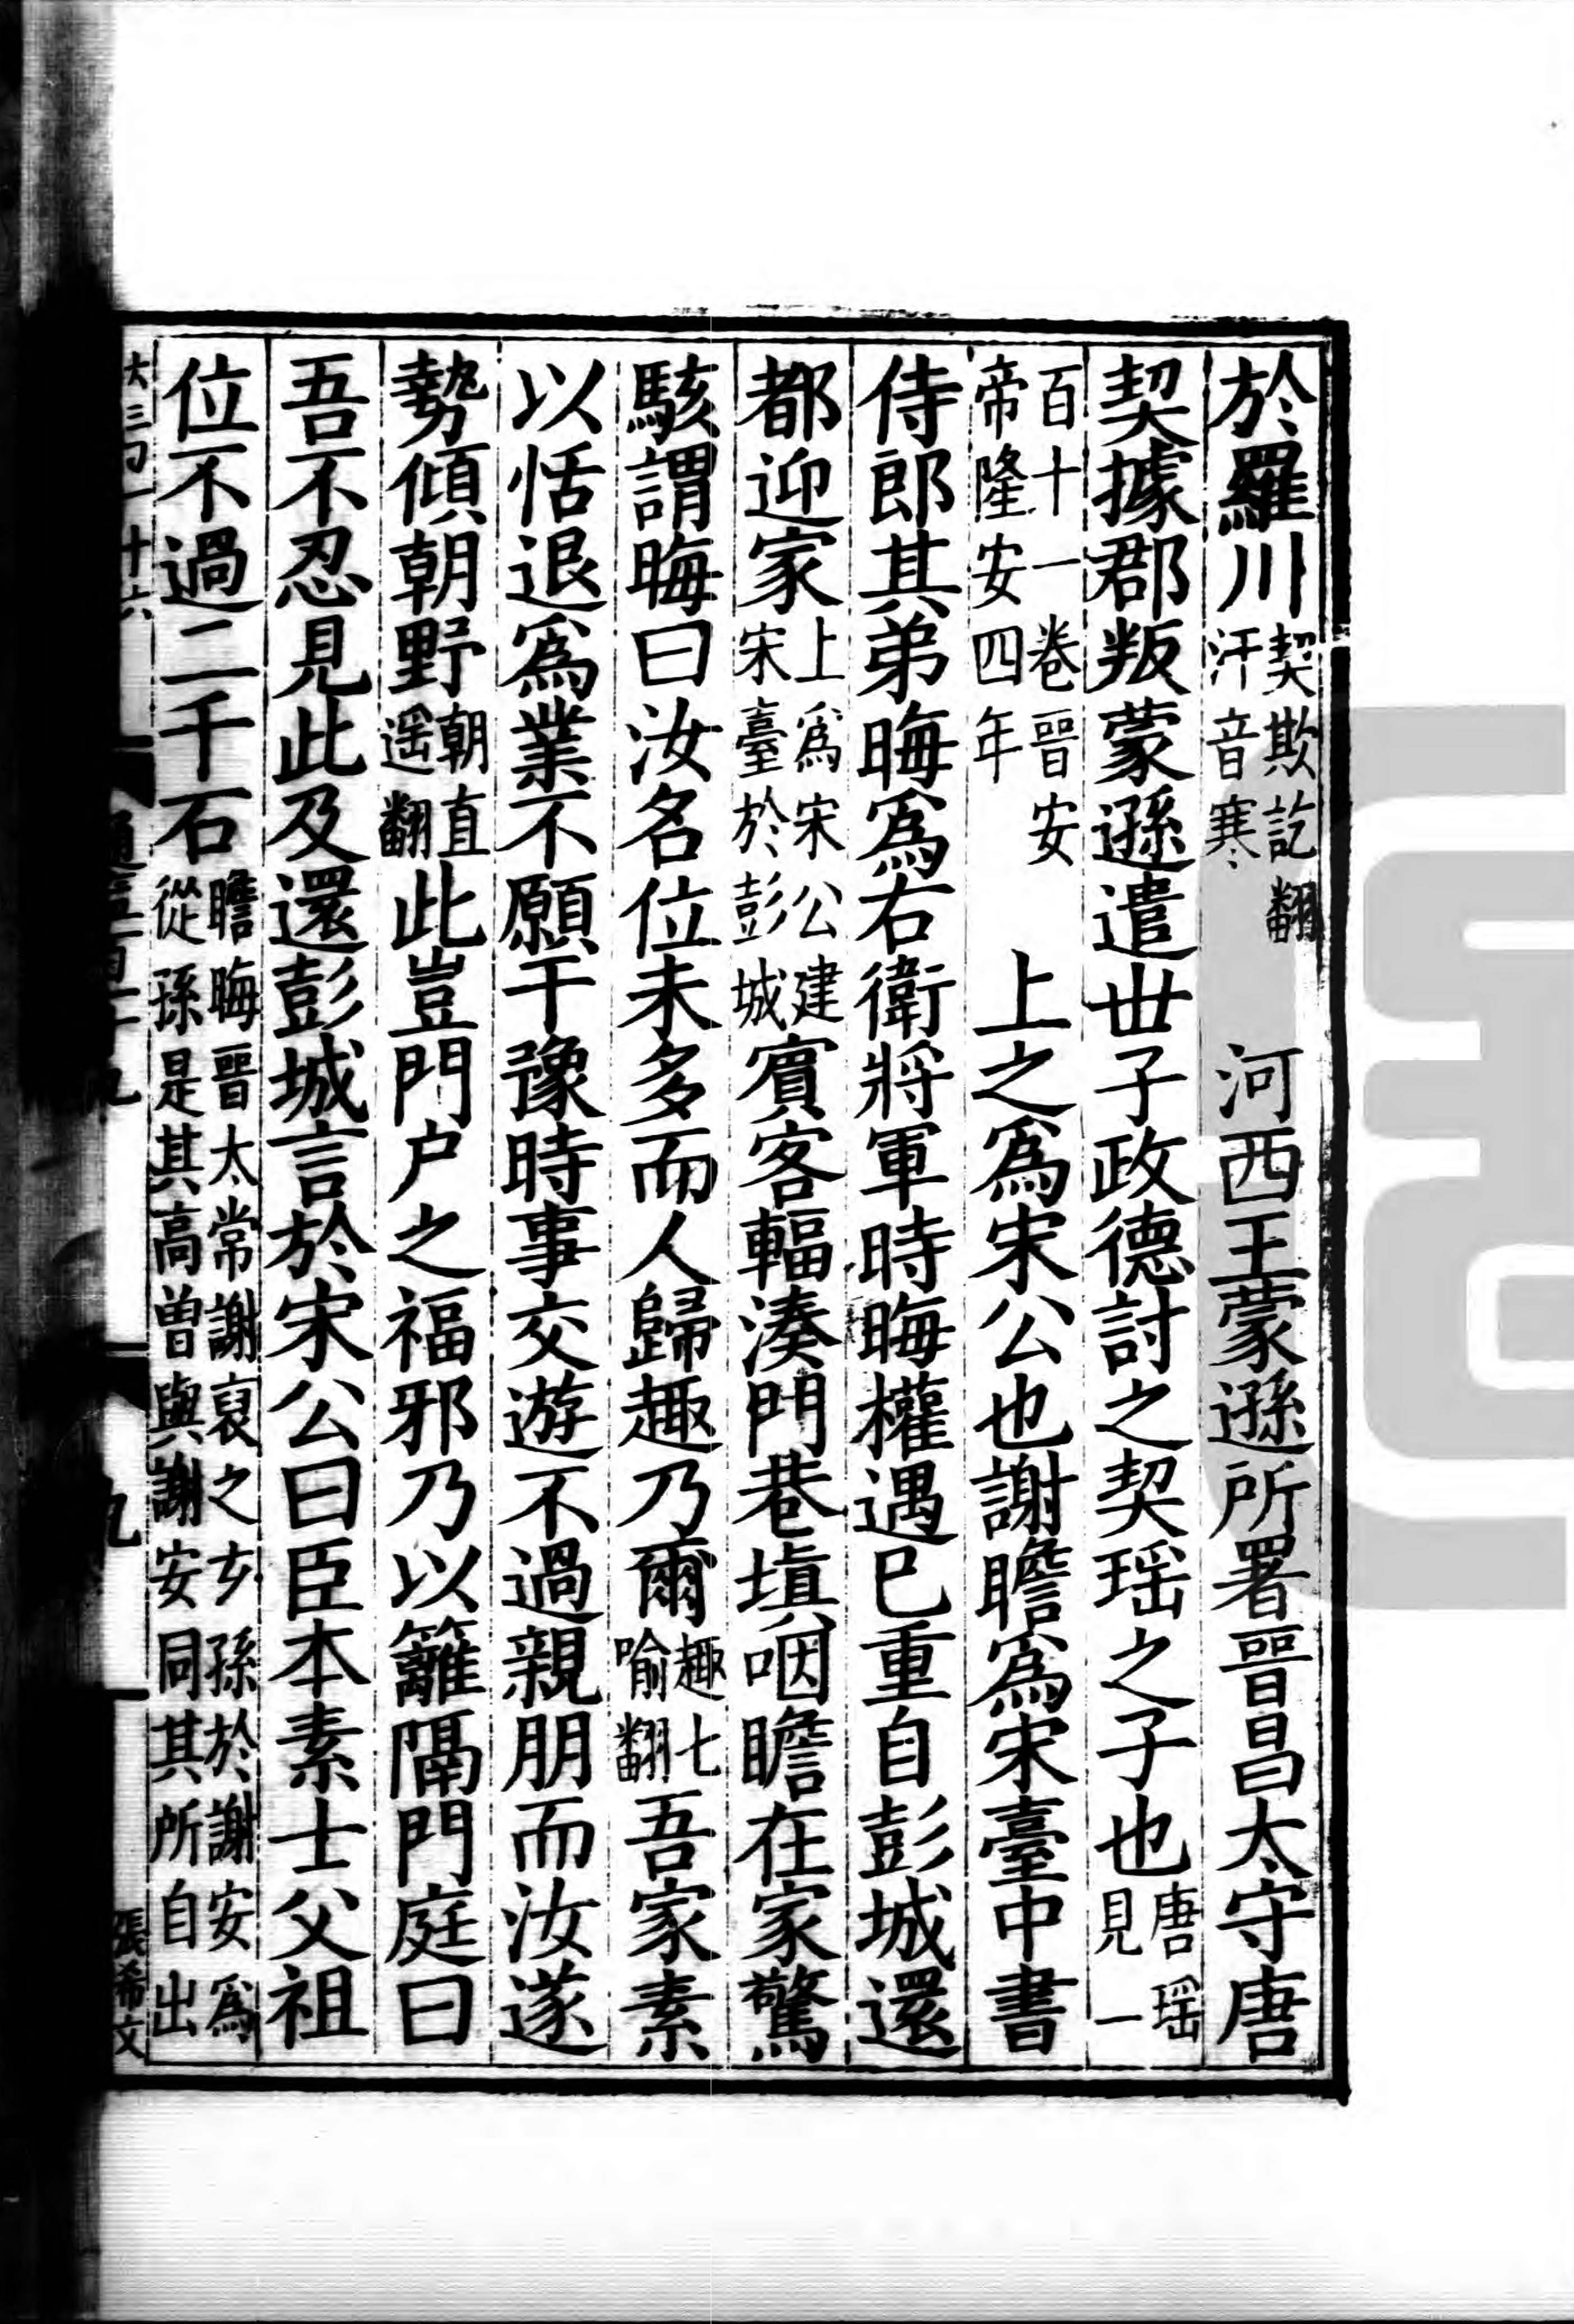 於羅川契欺訖翻汗音寒　河西王蒙遜所署晉昌太守唐
契據郡叛蒙遜遣世子政德討之契瑶之子也唐瑶見一
百十一卷晉安帝隆安四年　上之為宋公也謝瞻為宋臺中書
侍郎其弟晦為右衛將軍時晦權遇已重自彭城還
都迎家上為宋公建宋臺於彭城賓客輻湊門巷塡咽瞻在家驚
駭謂晦曰汝名位未多而人歸趣乃爾趣七喻翻吾家素
以恬退為業不願干豫時事交遊不過親朋而汝遂
勢傾朝野朝直遥翻此豈門户之福邪乃以籬隔門庭曰
吾不忍見此及還彭城言於宋公曰臣本素士父祖
位不過二千石瞻晦晉太常謝裒之玄孫於謝安為從孫是其高曾與謝安同其所自出
張希文